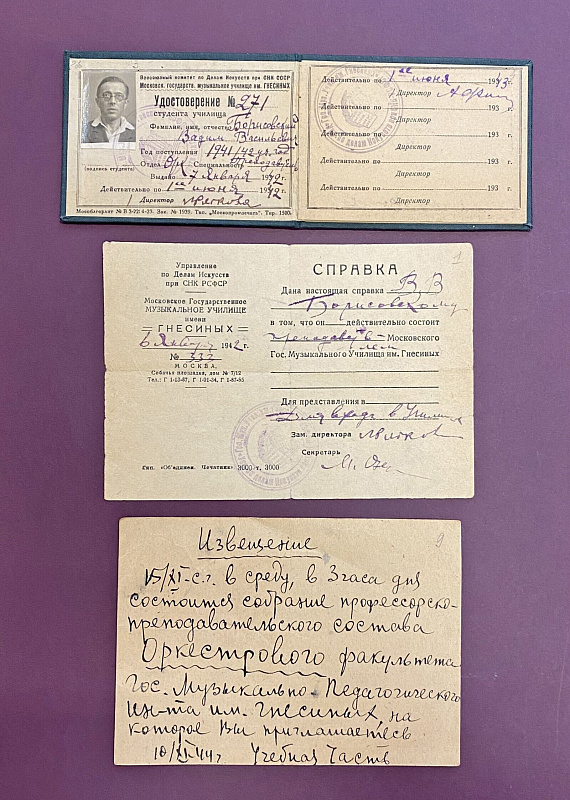 Всесоюзный комитет по Делам Искусств при СНК СССР
Московск. государств. музыкальное училище им. ГНЕСИНЫХ
Удостоверение № 271
студента училища
Фамилия, имя, отчество Борисовский
Вадим Васильевич
Год поступления 1941/42 уч. год
Отдел Орк. Специальность Преподаватель
Выдано 7 Января 1942 г.
(подпись студента)
Действительно по 1ое июня 1942 г.
Директор
Мособлгорлит № В 5-22: 4-23. Зак. № 1939. Тип. „Москопромпечать“. Тир. 1500.
Действительно по 1ое июня 1943 г.
Директор
Действительно по 193 г.
Директор
Действительно по 193 г.
Директор
Действительно по 193 г.
Директор
Действительно по 193 г.
Директор
Управление
по Делам Искусств
при СНК РСФСР
Московское Государственное
МУЗЫКАЛЬНОЕ УЧИЛИЩЕ
имени
ГНЕСИНЫХ
6 Января 1942 г.
№ 332
МОСКВА,
Собачья площадка, дом № 7/12
Тел.: Г 1-13-87, Г 1-91-34, Г 1-87-55
Тип. «Объединен. Печатник» 3000 т. 3000
1
СПРАВКА
Дана настоящая справка В В
Борисовскому
в том, что он действительно состоит
преподавателем Московского
Гос. Музыкального Училища им. Гнесиных
Для представления в
Для входа в Училище
Зам. директора
Секретарь
9
Извещение
15/XI-с.г. в среду, в 3 часа дня
состоится собрание профессорско-
преподавательского состава
Оркестрового факультета
Гос. Музыкально-Педагогического
Ин-та им. Гнесиных, на
которое Вы приглашаетесь.
10/XI 44 г. Учебная Часть